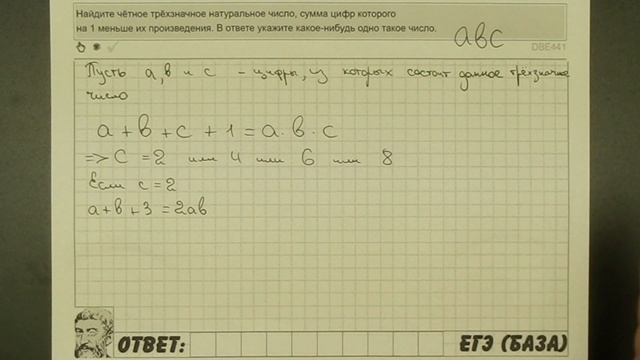 Найдите чётное трёхзначное натуральное число, сумма цифр которого
на 1 меньше их произведения. В ответе укажите какое-нибудь одно такое число.
авс
DBE441
Пусть а, в и с - цифры, из которых состоит данное трёхзначное
число
а + в + с + 1 = а · в · с
=> С = 2 или 4 или 6 или 8
Если с = 2
а + в + 3 = 2ав
ОТВЕТ:
ЕГЭ (БАЗА)